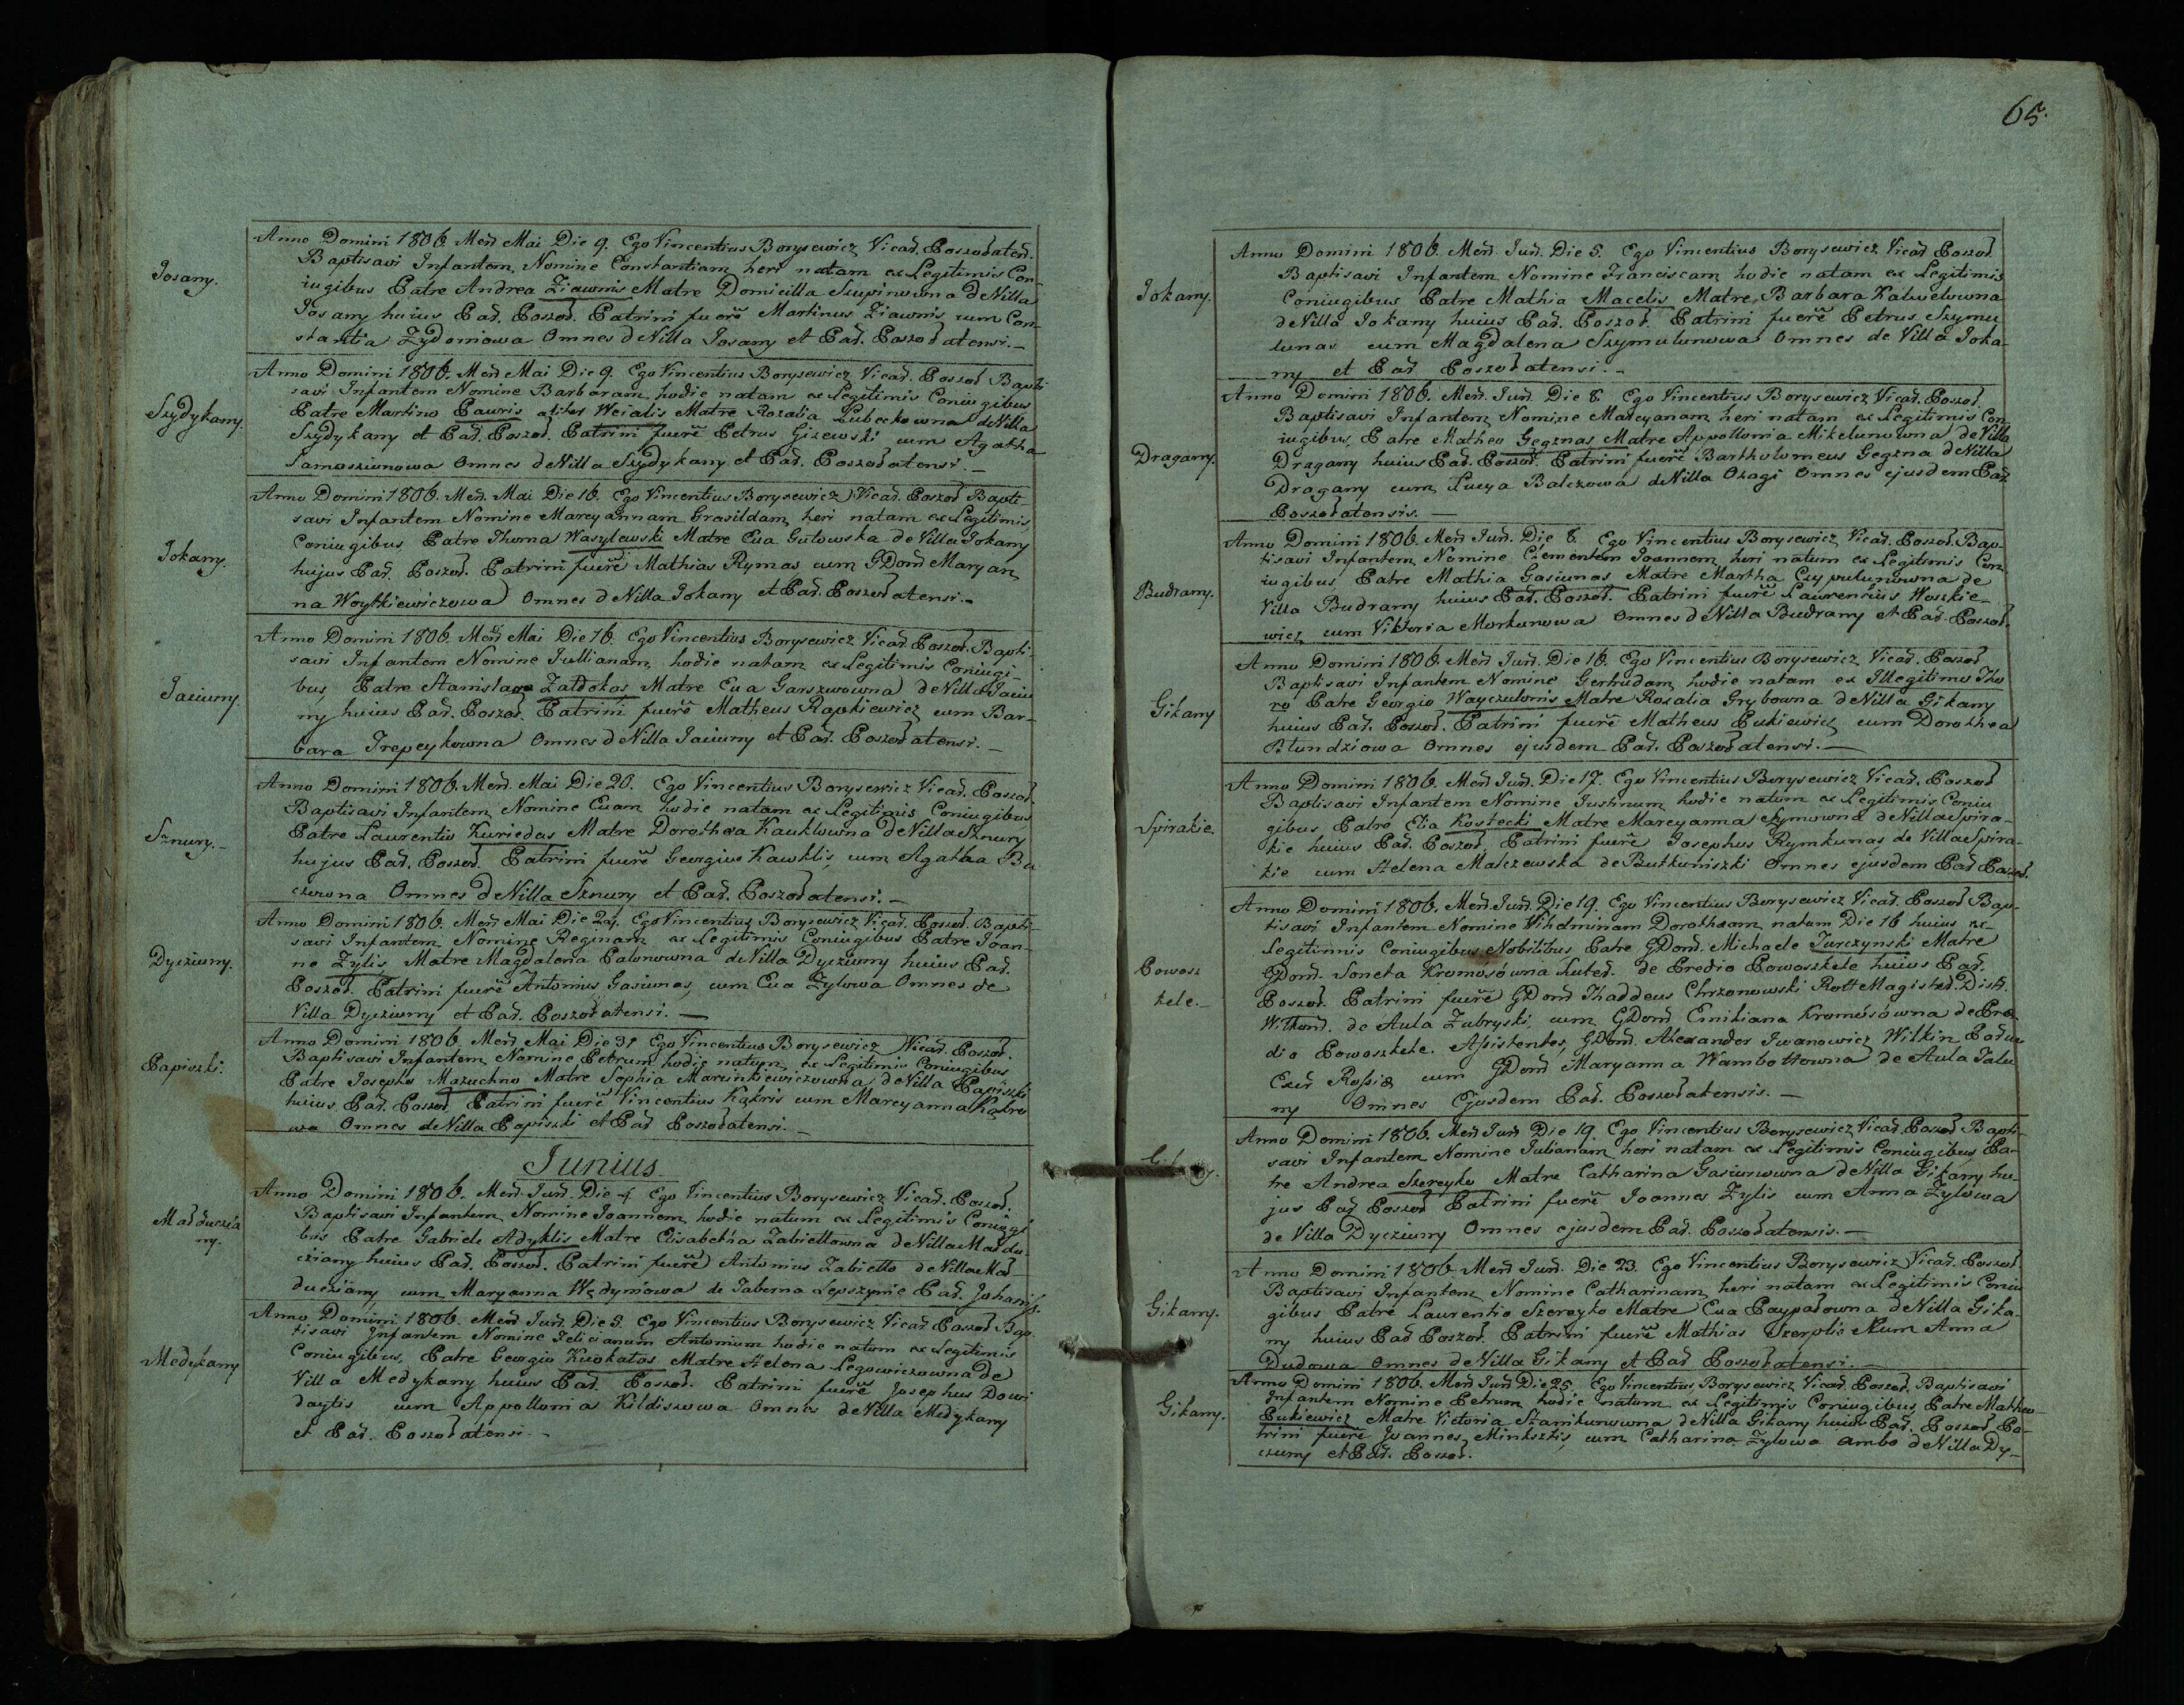 Josany.
Anno Domini 1806. Men̄ Mai Die 9. Ego Vincentius Borysewicz Vicar̄. Poszor̄aten̄.
Baptisavi Infantem, Nomine Constantiam, heri natam ex Legitimis Con-
iugibus Patre Andrea Ziawnis Matre Domicilla Szupinowna de Villa
Josany huius Par̄. Poszor̄. Patrini fuerē Martinus Ziawnis cum Con-
stantia Zydoniowa Omnes de Villa Josany et Par̄. Poszor̄atensi.-
Szydykany.
Anno Domini 1806. Men̄ Mai Die 9. Ego Vincentius Borysewicz Vicar̄. Poszor̄ Bapti
savi Infantem Nomine Barbaram, hodie natam ex Legitimis Coniugibus
Patre Martino Pauris aliter Weialis Matre Rozalia Lubeckowna de Villa
Szydykany et Par̄. Poszor̄. Patrini fuerē Petrus Gizewski cum Agatha
Samosziunowa Omnes de Villa Szydykany et Par̄. Poszor̄atensi.-
Jokany.
Anno Domini 1806. Men̄. Mai Die 16. Ego Vincentius Borysewicz Vicar̄. Poszor̄ Bapti
savi Infantem Nomine Marcyannam Grasildam, heri natam ex Legitimis
Coniugibus Patre Thoma Waszylewski Matre Eua Gutowska de Villa Jokany
hujus Par̄. Poszor̄. Patrini fuerē Mathias Rymas cum GDon̄a Maryan
na Woytkiewiczowa Omnes de Villa Jokany et Par̄. Poszor̄atensi.-
Jaciuny.
Anno Domini 1806. Men̄ Mai Die 16. Ego Vincentius Borysewicz Vicar̄. Poszor̄. Bapti-
savi Infantem Nomine Jullianam, hodie natam ex Legitimis Coniugi-
bus, Patre Stanislao Zaldokas Matre Eua Garszwowna de Villa Jaciu
ny huius Par̄. Poszor̄. Patrini fuerē Matheus Rapkiewicz cum Bar-
bara Trepeykowna Omnes de Villa Jaciuny et Par̄. Poszor̄atensi.-
Sznury.-
Anno Domini 1806. Men̄. Mai Die 20. Ego Vincentius Borysewicz Vicar̄. Poszor̄.
Baptisavi Infantem, Nomine Euam hodie natam ex Legitimis Coniugibus
Patre Laurentio Kuriedas Matre Dorothea Kauklowna de Villa Sznury
hujus Par̄. Poszor̄. Patrini fuerē Georgius Kawklis, cum Agatha Bu
czowna Omnes de Villa Sznury et Par̄. Poszor̄atensi.-
Dycziuny.
Anno Domini 1806. Men̄ Mai Die 24. Ego Vincentius Borysewicz Vicar̄. Poszor̄. Bapti-
savi Infantem, Nomine Reginam ex Legitimis Coniugibus Patre Joan-
ne Zylis Matre Magdalena Palonowna de Villa Dycziuny huius Par̄.
Poszor̄. Patrini fuerē Antonius Gasiunas, cum Eua Zylowa Omnes de
Villa Dycziuny et Par̄. Poszor̄atensi.-
Papiszki.
Anno Domini 1806. Men̄ Mai Die 31 Ego Vincentius Borysewicz Vicar̄. Poszor̄.
Baptisavi Infantem, Nomine Petrum hodie natum ex Legitimis Coniugibus
Patre Josepho Mazuchno Matre Sophia Marcinkiewiczowna de Villa Papiszki
huius Par̄. Poszor̄. Patrini fuerē Vincentius Katris cum Marcyanna Katro
wa Omnes de Villa Papiszki et Par̄ Poszor̄atensi.-
Junius.
Madduczia
ny.
Anno Domini 1806. Men̄. Jun̄. Die 4 Ego Vincentius Borysewicz Vicar̄. Poszor̄.
Baptisavi Infantem, Nomine Joannem, hodie natum ex Legitimis Coniugi
bus Patre Gabriele Adyklis Matre Elisabetha Zabiellowna de Villa Maddu-
cziany huius Par̄. Poszor̄. Patrini fuerē Antonius Zabiello de Villa Mad-
ducziany cum Maryanna Wędyniowa de Taberna Lepszynie Par̄. Johanis.
Medykany
Anno Domini 1806. Men̄ Jun̄. Die 5. Ego Vincentius Borysewicz Vicar̄ Poszor̄ Bap-
tisavi Infantem Nomine Felicianum Antonium hodie natum ex Legitimis
Coniugibus, Patre Georgio Kuokalas Matre Helena Legowiczowna de
Villa Medykany huius Par̄. Poszor̄. Patrini fuerē Josephus Dowi
daytis cum Appollonia Kildiszowa Omnes de Villa Medykany
et Par̄. Poszor̄atensi.-
65.
Jokany.
Anno Domini 1806. Men̄. Jun̄. Die 5. Ego Vincentius Borysewicz Vicar̄ Poszor̄.
Baptisavi Infantem Nomine Franciscam, hodie natam ex Legitimis
Coniugibus Patre Mathia Macelis Matre, Barbara Kalwelowna
de Villa Jokany huius Par̄. Poszor̄. Patrini fuerē Petrus Szymu
lunas cum Magdalena Szymulunowa Omnes de Villa Joka-
ny et Par̄ Poszor̄atensi.-
Dragany.
Anno Domini 1806. Men̄. Jun̄. Die 8. Ego Vincentius Borysewicz Vicar̄. Poszor̄.
Baptisavi Infantem, Nomine Marcyanam, heri natam ex Legitimis Con
iugibus, Patre Matheo Gegznas Matre Appollonia Mikelunowna de Villa
Dragany huius Par̄. Poszor̄. Patrini fuerē Bartholomeus Gegzna de Villa
Dragany cum Lucya Balczowa de Villa Ozagi Omnes ejusdem Par̄
Poszor̄atensis.-
Budrany.
Anno Domini 1806. Men̄ Jun̄. Die 8. Ego Vincentius Borysewicz Vicar̄. Poszor̄. Bap-
tisavi Infantem, Nomine Clementem Joannem, heri natum ex Legitimis Con
iugibus Patre Mathia Gasiunas Matre Martha Czypulunowna de
Villa Budrany huius Par̄. Poszor̄. Patrini fuerē Laurentius Woszkie-
wicz cum Viktoria Morkunowa Omnes de Villa Budrany et Par̄. Poszor̄.
Gikany
Anno Domini 1806. Men̄ Jun̄. Die 16. Ego Vincentius Borysewicz Vicar̄. Poszor̄
Baptisavi Infantem Nomine Gertrudam, hodie natam ex Illegitimo Tho
ro Patre Georgio Wayczulonis Matre Rosalia Grybowna de Villa Gikany
huius Par̄. Poszor̄. Patrini fuerē Matheus Pukiewicz cum Dorothea
Blundziowa Omnes ejusdem Par̄. Poszor̄atensi.-
Spirakie.
Anno Domini 1806. Men̄ Jun̄. Die 17. Ego Vincentius Borysewicz Vicar̄. Poszor̄
Baptisavi Infantem Nomine Justinum, hodie natum ex Legitimis Coniu
gibus Patre Elia Kostecki Matre Marcyanna Szymowna de Villa Spira-
kie huius Par̄. Poszor̄. Patrini fuerē Josephus Rymkunas de Villa Spira-
kie cum Helena Malczewska de Butkuniszki Omnes ejusdem Par̄ Poszor̄.
Powosz
kele.-
Anno Domini 1806. Men̄. Jun̄. Die 19. Ego Vincentius Borysewicz Vicar̄. Poszor̄ Bap-
tisavi Infantem Nomine Wilhelminam Dorotheam, natam Die 16 huius ex
Legitimis Coniugibus Nobilibus Patre GDon̄. Michaele Jurczynski Matre
GDon̄. Loneta Kromosówna Luter̄. de Predio Powoszkele huius Par̄.
Poszor̄. Patrini fuerē GDon̄ Thaddeus Chrzonowski Rott Magister̄. Dist.
Wilkom̄. de Aula Zubryski, cum GDon̄ Emiliana Kromósówna de Pre-
dio Powoszkele. Assistentes, GDon̄. Alexander Jwanowicz Wilkin
Exer̄ Rossiæ cum GDon̄ Maryanna Wambottowna de Aula Jalu
ny Omnes Ejusdem Par̄. Poszor̄atensis.-
Anno Domini 1806. Men̄ Jun̄ Die 19. Ego Vincentius Borysewicz Vicar̄. Poszor̄ Bapti-
savi Infantem Nomine Julianam, heri natam ex Legitimis Coniugibus Pa-
tre Andrea Szereyko Matre Catharina Gasiunowna de Villa Gikany hu-
jus Par̄ Poszor̄ Patrini fuerē Joannes Zylis cum Anna Zylowa
de Villa Dycziuny Omnes ejusdem Par̄. Poszor̄atensis.-
Gikany.
Anno Domini 1806. Men̄ Jun̄. Die 23. Ego Vincentius Borysewicz Vicar̄. Poszor̄.
Baptisavi Infantem, Nomine Catharinam, heri natam ex Legitimis Coniu
gibus Patre Laurentio Szereyko Matre Eua Paypałowna de Villa Gika-
ny huius Par̄ Poszor̄. Patrini fuerē Mathias Szerplis cum Anna
Dudowa Omnes de Villa Gikany et Par̄ Poszor̄atensi.-
Gikany.
Anno Domini 1806. Men̄ Jun̄ Die 25. Ego Vincentius Borysewicz Vicar̄. Poszor̄. Baptisavi
Infantem Nomine Petrum, hodie natum ex Legitimis Coniugibus, Patre Matheo
Pukiewicz Matre Victoria Stanikunowna de Villa Gikany huius Par̄. Poszor̄ Pa-
trini fuerē Joannes Minkszlis, cum Catharina Zylowa ambo de Villa Dy-
cziuny et Par̄. Poszor̄.